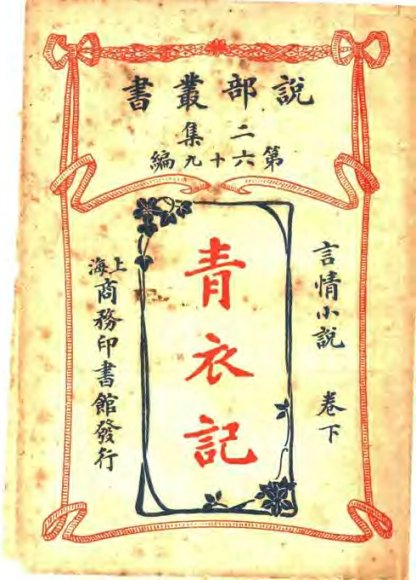 說部叢書
第二集
第六十九編
言情小說 卷下
青衣記
上海商務印書館發行